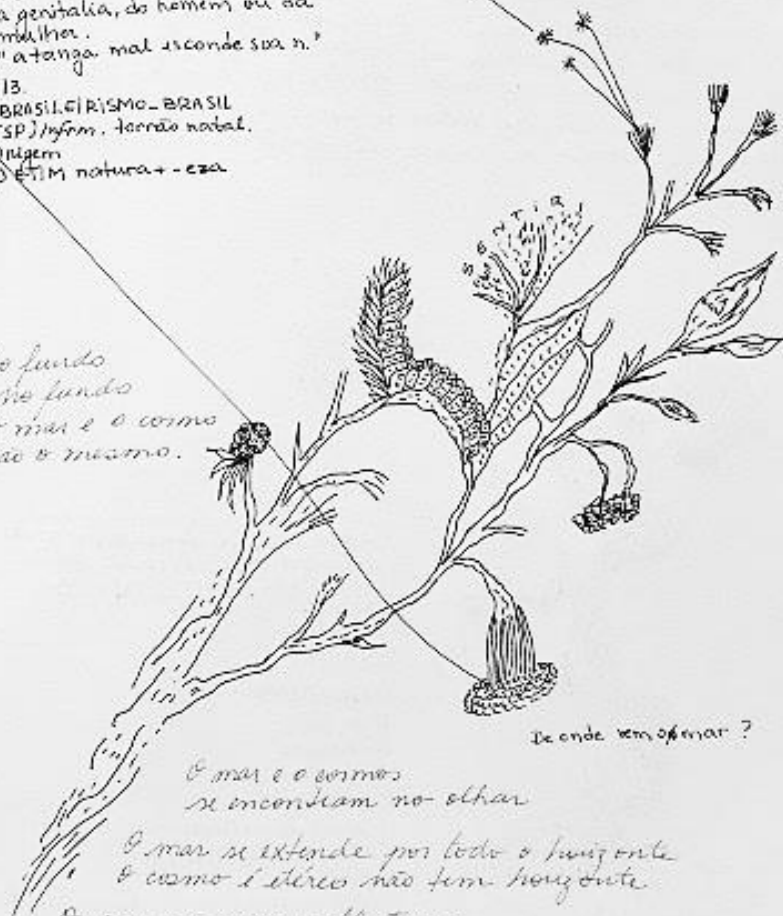 a genitália, do homem ou da
mulher.
"a tanga mal esconde sua n."
13.
BRASILEIRISMO_BRASIL
SP)/nfrm. torrão natal.
origem
ETIM natura + -eza
SENTIR
o fundo
no fundo
mar e o cosmo
ão o mesmo.
De onde vem o mar?
O mar e o cosmos
se encontram no olhar
O mar se extende por todo o horizonte
O cosmo é etéreo não tem horizonte